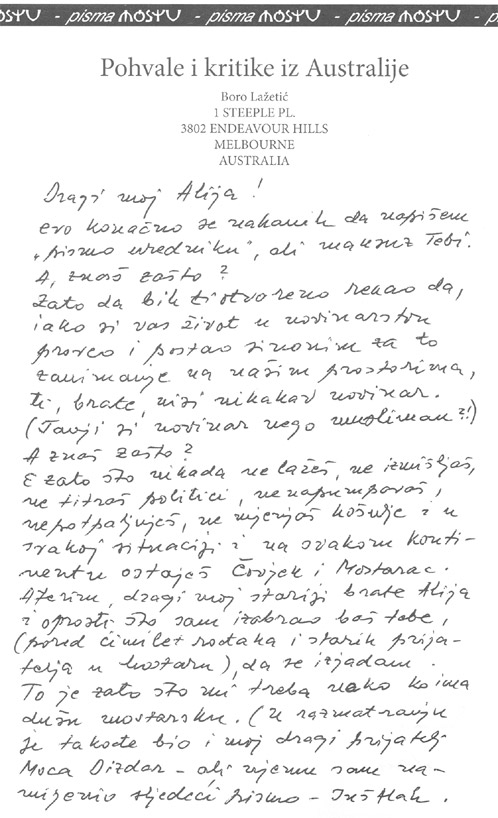 - pisma MOSTU - pisma MOSTU - pisma MOSTU - pisma MOSTU - p
Pohvale i kritike iz Australije
Boro Lažetić
1 STEEPLE PL.
3802 ENDEAVOUR HILLS
MELBOURNE
AUSTRALIA
Dragi moj Alija!
evo konačno se nakanih da napišem
„pismo uredniku", ali maksuz Tebi.
A, znaš zašto?
Zato da bih ti otvoreno rekao da,
iako si vas život u novinarstvu
proveo i postao sinonim za to
zanimanje na našim prostorima,
ti, brate, nisi nikakav novinar.
(Tanji si novinar nego musliman?!)
A znaš zašto?
E zato što nikada ne lažeš, ne izmišljaš,
ne titraš politici, ne napumpavaš,
nepotpaljuješ, ne mjenjaš košulje i u
svakoj situaciji i na svakom konti-
nentu ostaješ Čovjek i Mostarac.
Aferim, dragi moj stariji brate Alija
i oprosti što sam izabrao baš tebe,
(pored čimilet rođaka i starih prija-
telja u Mostaru), da se izjadam.
To je zato što mi treba neko ko ima
dušu mostarsku. (U razmatranju
je takođe bio i moj dragi prijatelj
Moca Dizdar - ali njemu sam na-
mijenio sljedeći pismo - Inšallah.